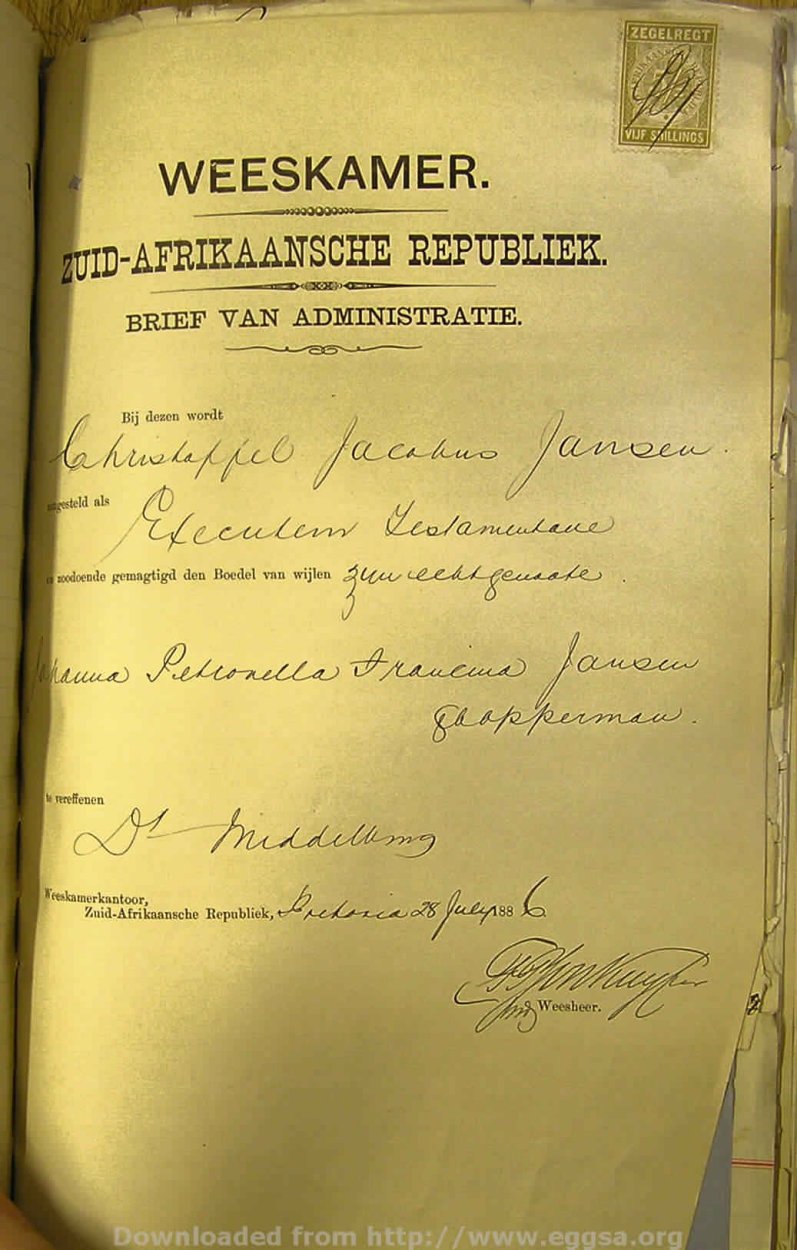 ZEGELREGT
VIJF SHILLINGS
WEESKAMER.
ZUID-AFRIKAANSCHE REPUBLIEK.
BRIEF VAN ADMINISTRATIE.
Bij dezen wordt
Christoffel Jacobus Jansen.
angesteld als
Executeur Testamentaire
zoodoende gemagtigd den Boedel van wijlen zijn echtgenoote.
Johanna Petronella Francina Jansen
gb Opperman.
te vereffenen
Dt Middelburg
Weeskamerkantoor,
Zuid-Afrikaansche Republiek, Pretoria 28 July 1886
Weesheer.
Downloaded from http://www.eggsa.org